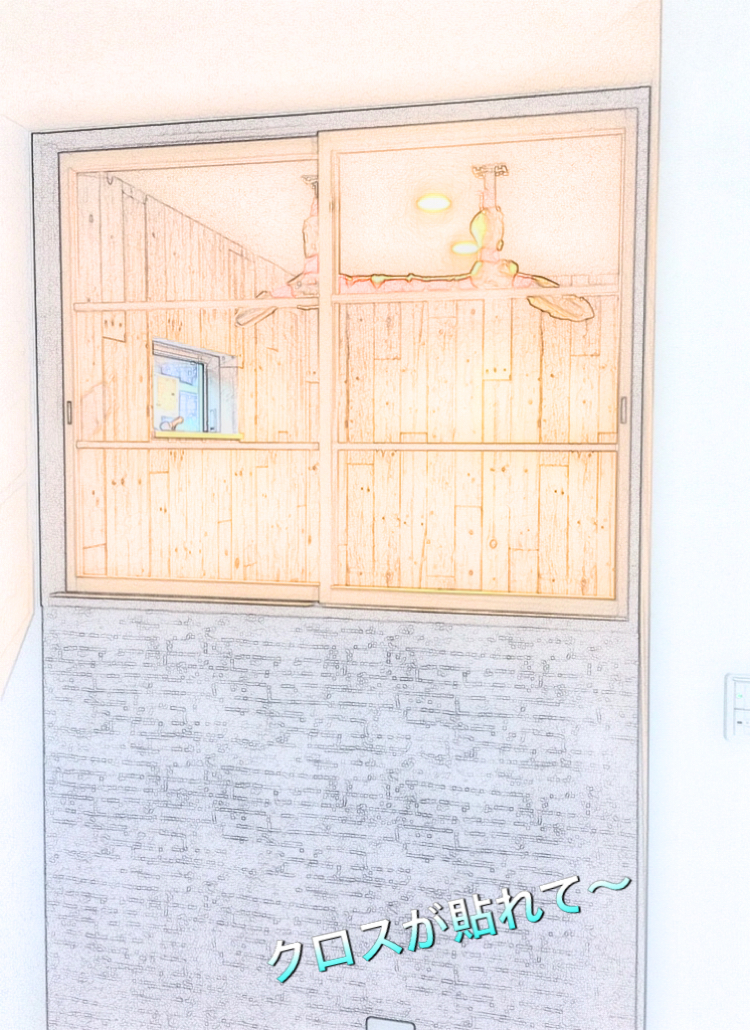 クロスが貼れて～